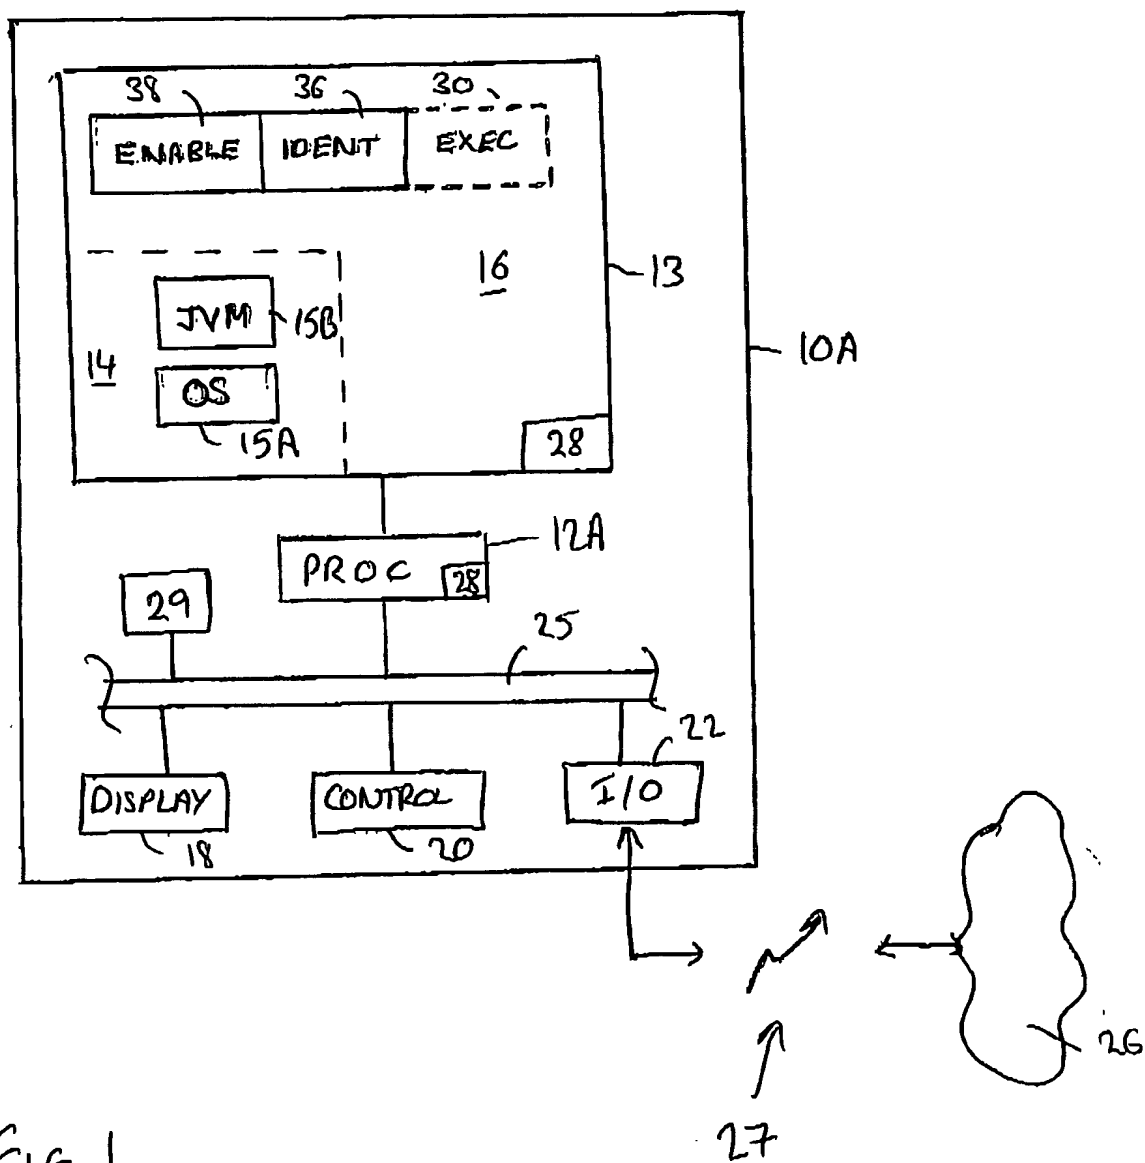 38 36 30
ENABLE IDENT EXEC
16
13
JVM 15B
10A
14
OS
15A
28
12A
PROC 28
29
25
22
DISPLAY CONTROL I/O
18 20
26
27
FIG 1